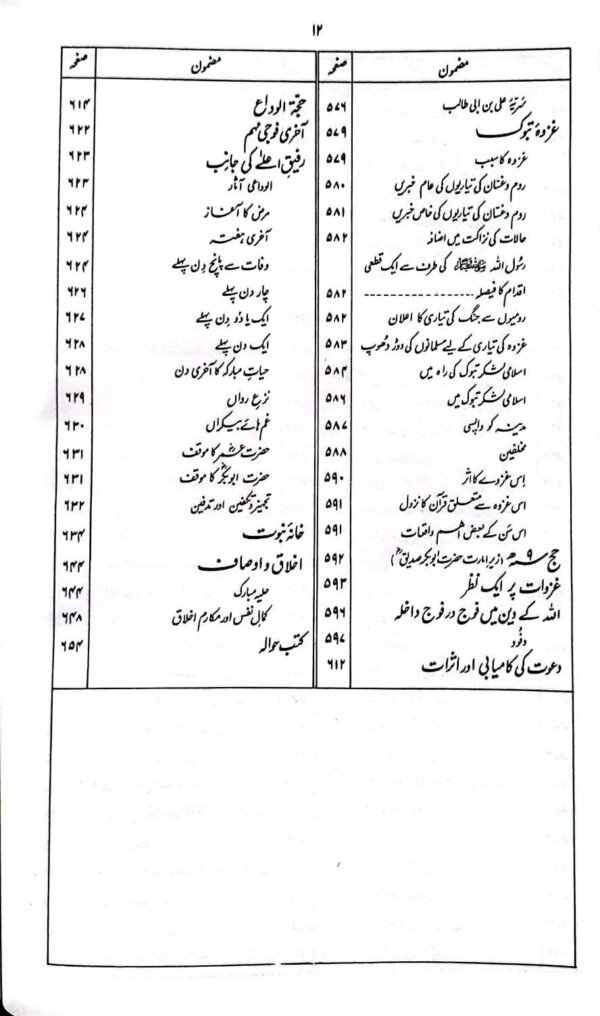 ۱۲
مضمون صفحہ
سریّہ علی بن ابی طالب ۵۷۶
غزوۂ تبوک ۵۷۹
غزوہ کا سبب ۵۷۹
روم و غسّان کی تیاریوں کی عام خبریں ۵۸۰
روم و غسّان کی تیاریوں کی خاص خبریں ۵۸۱
حالات کی نزاکت میں اضافہ ۵۸۲
رسُول اللہ ﷺ کی طرف سے ایک قطعی
اقدام کا فیصلہ ۵۸۲
رومیوں سے جنگ کی تیاری کا اعلان ۵۸۲
غزوہ کی تیاری کے لیے مسلمانوں کی دوڑ دھُوپ ۵۸۳
اسلامی لشکر تبوک کی راہ میں ۵۸۴
اسلامی لشکر تبوک میں ۵۸۶
مدینہ کو واپسی ۵۸۷
مخلفین ۵۸۸
اِس غزوے کا اثر ۵۹۰
اس غزوہ سے متعلق قرآن کا نزول ۵۹۱
اس سَن کے بعض اہم واقعات ۵۹۱
حج ۹ھ (زیر امارت حضرت ابوبکر صدیقؓ) ۵۹۲
غزوات پر ایک نظر ۵۹۳
اللہ کے دین میں فوج در فوج داخلہ ۵۹۶
وفُود ۵۹۷
دعوت کی کامیابی اور اثرات ۶۱۲
مضمون صفحہ
حجّۃ الوداع ۶۱۴
آخری فوجی مہم ۶۲۲
رفیقِ اعلےٰ کی جانب ۶۲۳
الوداعی آثار ۶۲۳
مرض کا آغاز ۶۲۴
آخری ہفتہ ۶۲۴
وفات سے پانچ دِن پہلے ۶۲۴
چار دِن پہلے ۶۲۶
ایک یا دو دِن پہلے ۶۲۷
ایک دن پہلے ۶۲۸
حیاتِ مبارکہ کا آخری دن ۶۲۸
نزعِ رواں ۶۲۹
غم ہائے بیکراں ۶۳۰
حضرت عمرؓ کا موقف ۶۳۱
حضرت ابوبکرؓ کا موقف ۶۳۱
تجہیز و تکفین اور تدفین ۶۳۲
خانۂ نبوت ۶۳۴
اخلاق و اوصاف ۶۴۴
حلیہ مبارک ۶۴۴
کمالِ نفس اور مکارمِ اخلاق ۶۴۸
کتب حوالہ ۶۵۴